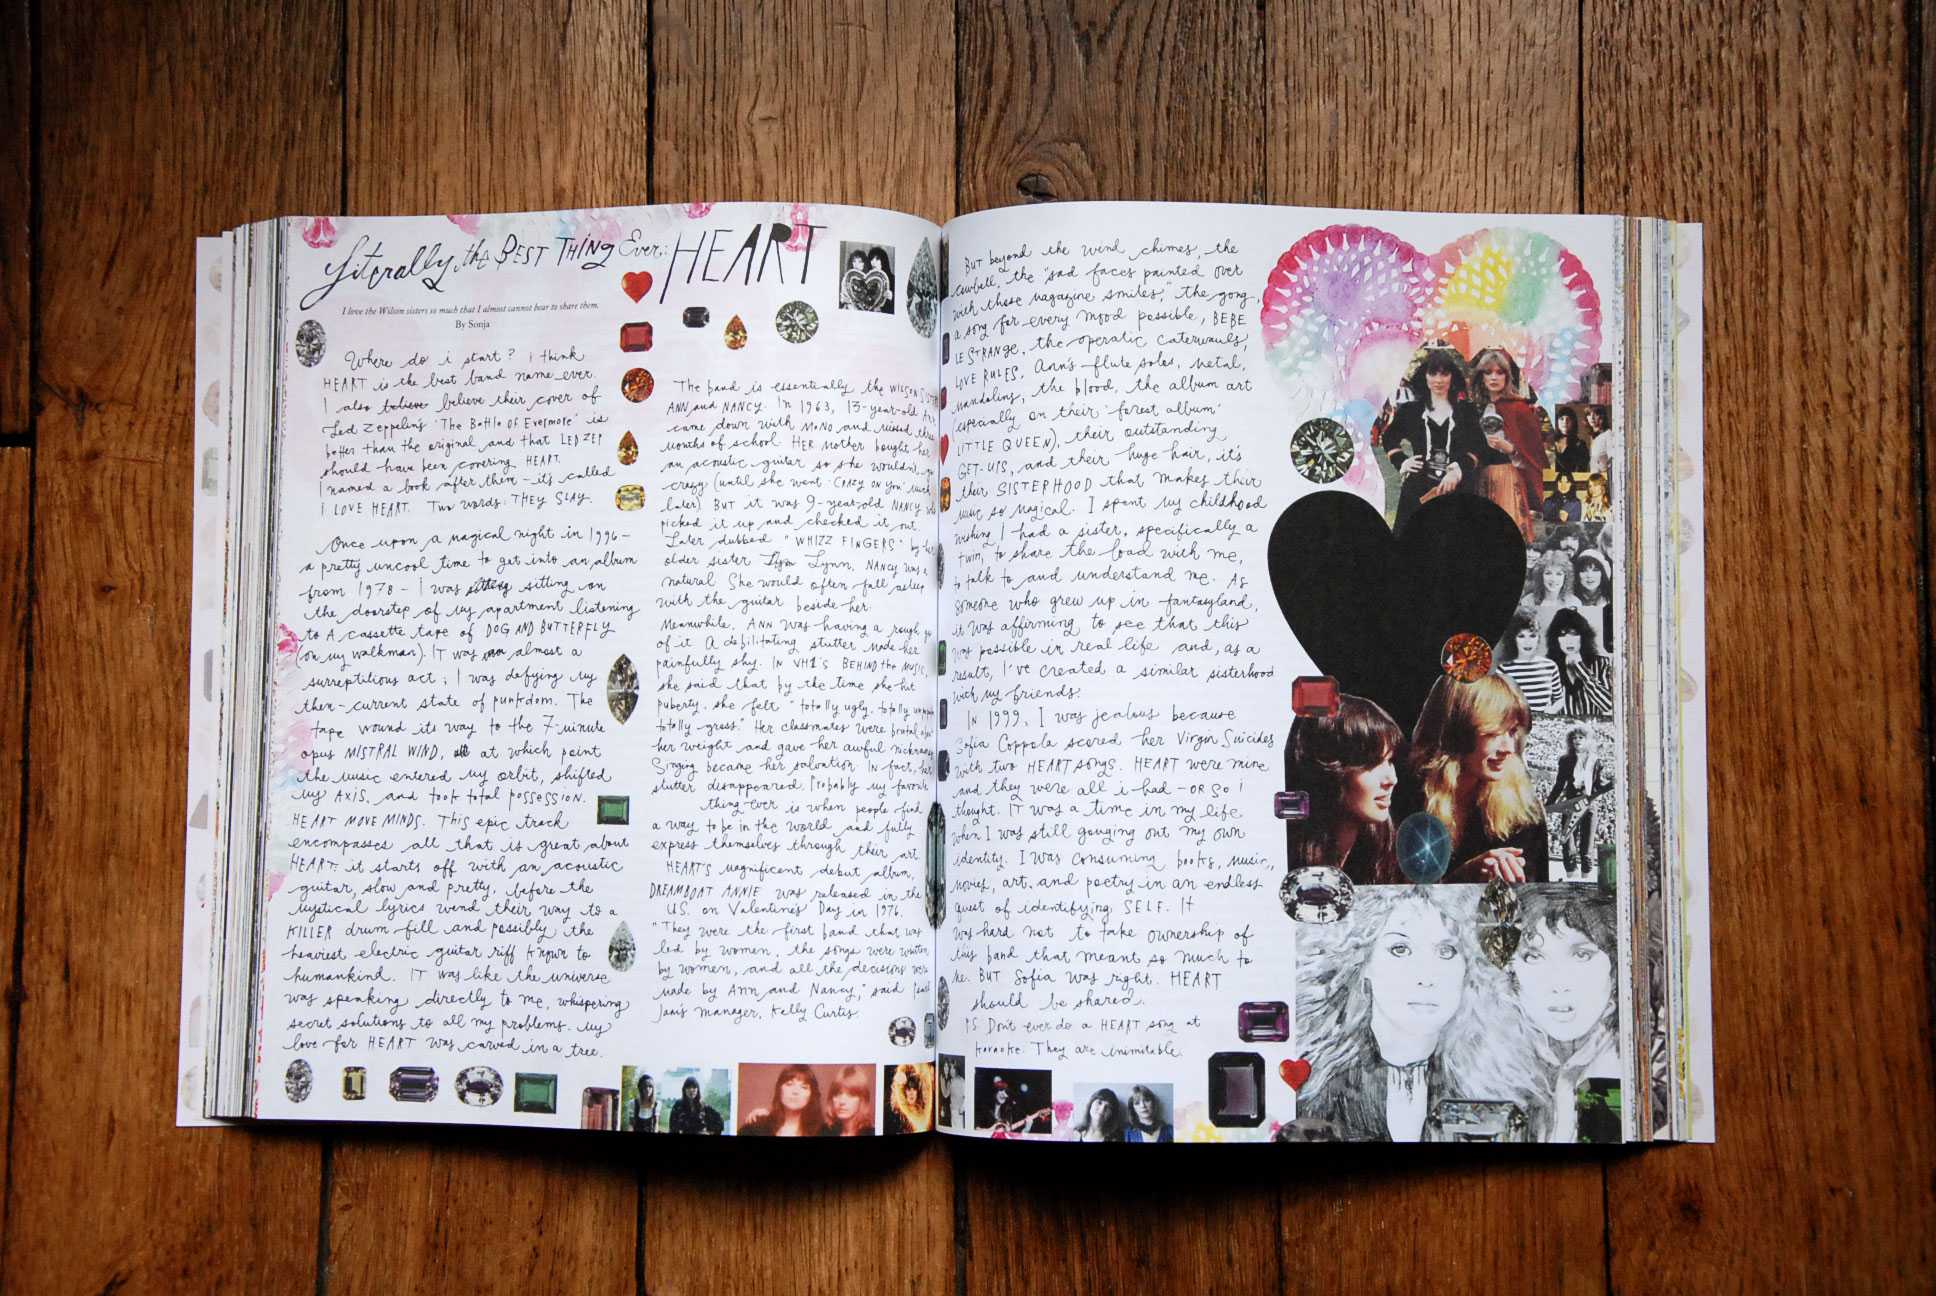 Literally the BEST THING Ever: HEART
I love the Wilson sisters so much that I almost cannot bear to share them.
By Sonja
Where do i start? i think
HEART is the best band name ever.
I also believe believe their cover of
Led Zeppelin's 'The Battle of Evermore' is
better than the original and that LED ZEP
should have been covering HEART.
I named a book after them – it's called
I LOVE HEART. Two words: THEY SLAY.
Once upon a magical night in 1996 –
a pretty uncool time to get into an album
from 1978 – I was sitting on
the doorstep of my apartment listening
to A cassette tape of DOG AND BUTTERFLY
(on my walkman). IT was almost a
surreptitious act; I was defying my
then-current state of punkdom. The
tape wound its way to the 7-minute
opus MISTRAL WIND, at which point
the music entered my orbit, shifted
my AXIS, and took total possession.
HEART MOVE MINDS. This epic track
encompasses all that is great about
HEART: it starts off with an acoustic
guitar, slow and pretty, before the
mystical lyrics wend their way to a
KILLER drum fill and possibly the
heaviest electric guitar riff known to
humankind. IT was like the universe
was speaking directly to me, whispering
secret solutions to all my problems. My
love for HEART was carved in a tree.
The band is essentially the WILSON
ANN and NANCY. In 1963, 13-year-old Ann
came down with MONO and missed three
months of school. HER mother bought her
an acoustic guitar so she wouldn't go
crazy (until she went 'CRAZY ON YOU' much
later). BUT it was 9-year-old NANCY who
picked it up and checked it out.
Later dubbed "WHIZZ FINGERS" by her
older sister Lynn, NANCY was a
natural. She would often fall asleep
with the guitar beside her.
Meanwhile, ANN was having a rough go
of it. A debilitating stutter made her
painfully shy. IN VH1'S BEHIND the MUSIC,
she said that by the time she hit
puberty, she felt "totally ugly, totally
totally gross." Her classmates were brutal about
her weight and gave her awful nicknames.
Singing became her salvation. IN fact, her
stutter disappeared. Probably my favorite
thing ever is when people find
a way to be in the world and fully
express themselves through their art.
HEART'S magnificent debut album,
DREAMBOAT ANNIE was released in the
U.S. on Valentine's Day in 1976.
"They were the first band that was
led by women, the songs were written
by women, and all the decisions were
made by Ann and Nancy," said Pearl
Jam's manager, Kelly Curtis.
BUT beyond the wind chimes, the
cowbell, the "sad faces painted over
with those magazine smiles," the gong,
a song for every mood possible, BEBE
LE STRANGE, the operatic caterwauls,
LOVE RULES, Ann's flute solos, metal,
mandolins, the blood, the album art
(especially on their 'forest album'
LITTLE QUEEN), their outstanding
GET-UPS, and their huge hair, it's
their SISTERHOOD that makes their
music so magical. I spent my childhood
wishing I had a sister, specifically a
twin, to share the load with me,
to talk to and understand me. As
someone who grew up in fantasyland,
it was affirming to see that this
was possible in real life and, as a
result, I've created a similar sisterhood
with my friends.
IN 1999, I was jealous because
Sofia Coppola scored her Virgin Suicides
with two HEART songs. HEART were mine
and they were all i had – OR SO I
thought. IT was a time in my life
when I was still gouging out my own
identity. I was consuming books, music,
movies, art, and poetry in an endless
quest of identifying SELF. It
was hard not to take ownership of
this band that meant so much to
me. BUT Sofia was right. HEART
should be shared.
PS Don't ever do a HEART song at
karaoke. They are inimitable.